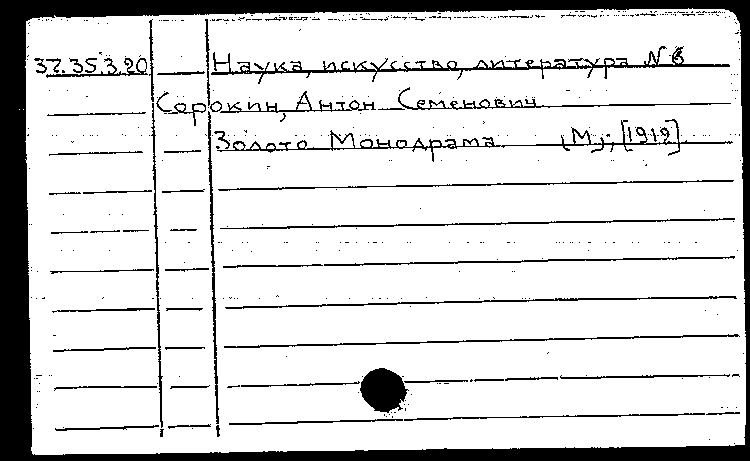 37.35.3.20 Наука, искусство, литература № 6
Сорокин, Антон Семенович
Золото Монодрама. [М]; [1919].